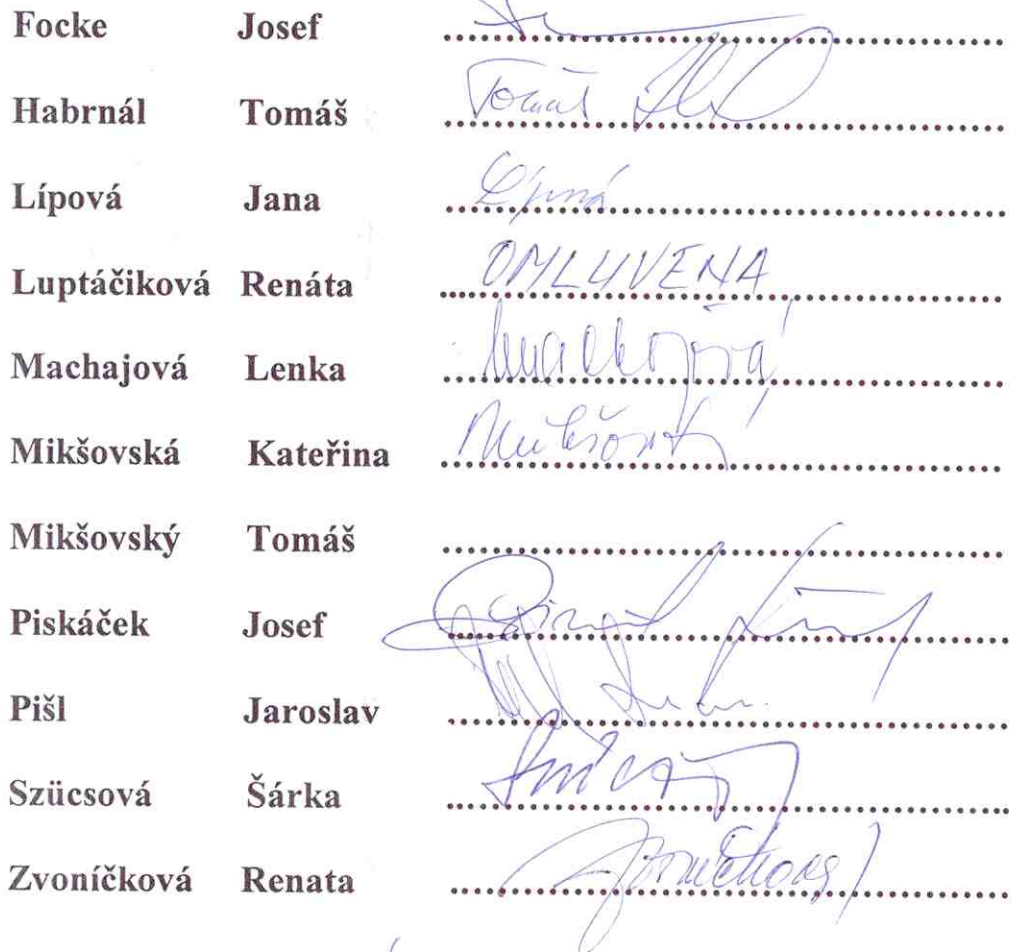 Focke Josef
Habrnál Tomáš Tomáš
Lípová Jana Lípová
Luptáčiková Renáta OMLUVENA
Machajová Lenka Machajová
Mikšovská Kateřina Mikšovská
Mikšovský Tomáš
Piskáček Josef
Pišl Jaroslav
Szücsová Šárka
Zvoníčková Renata Zvoníčková